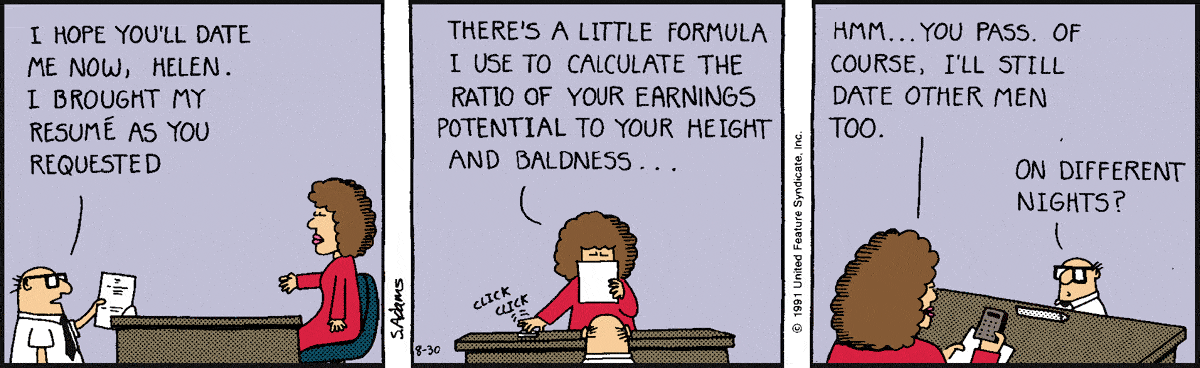 I HOPE YOU'LL DATE
ME NOW, HELEN.
I BROUGHT MY
RESUMÉ AS YOU
REQUESTED
S.Adams
THERE'S A LITTLE FORMULA
I USE TO CALCULATE THE
RATIO OF YOUR EARNINGS
POTENTIAL TO YOUR HEIGHT
AND BALDNESS...
CLICK
CLICK
8-30
© 1991 United Feature Syndicate, Inc.
HMM...YOU PASS. OF
COURSE, I'LL STILL
DATE OTHER MEN
TOO.
ON DIFFERENT
NIGHTS?